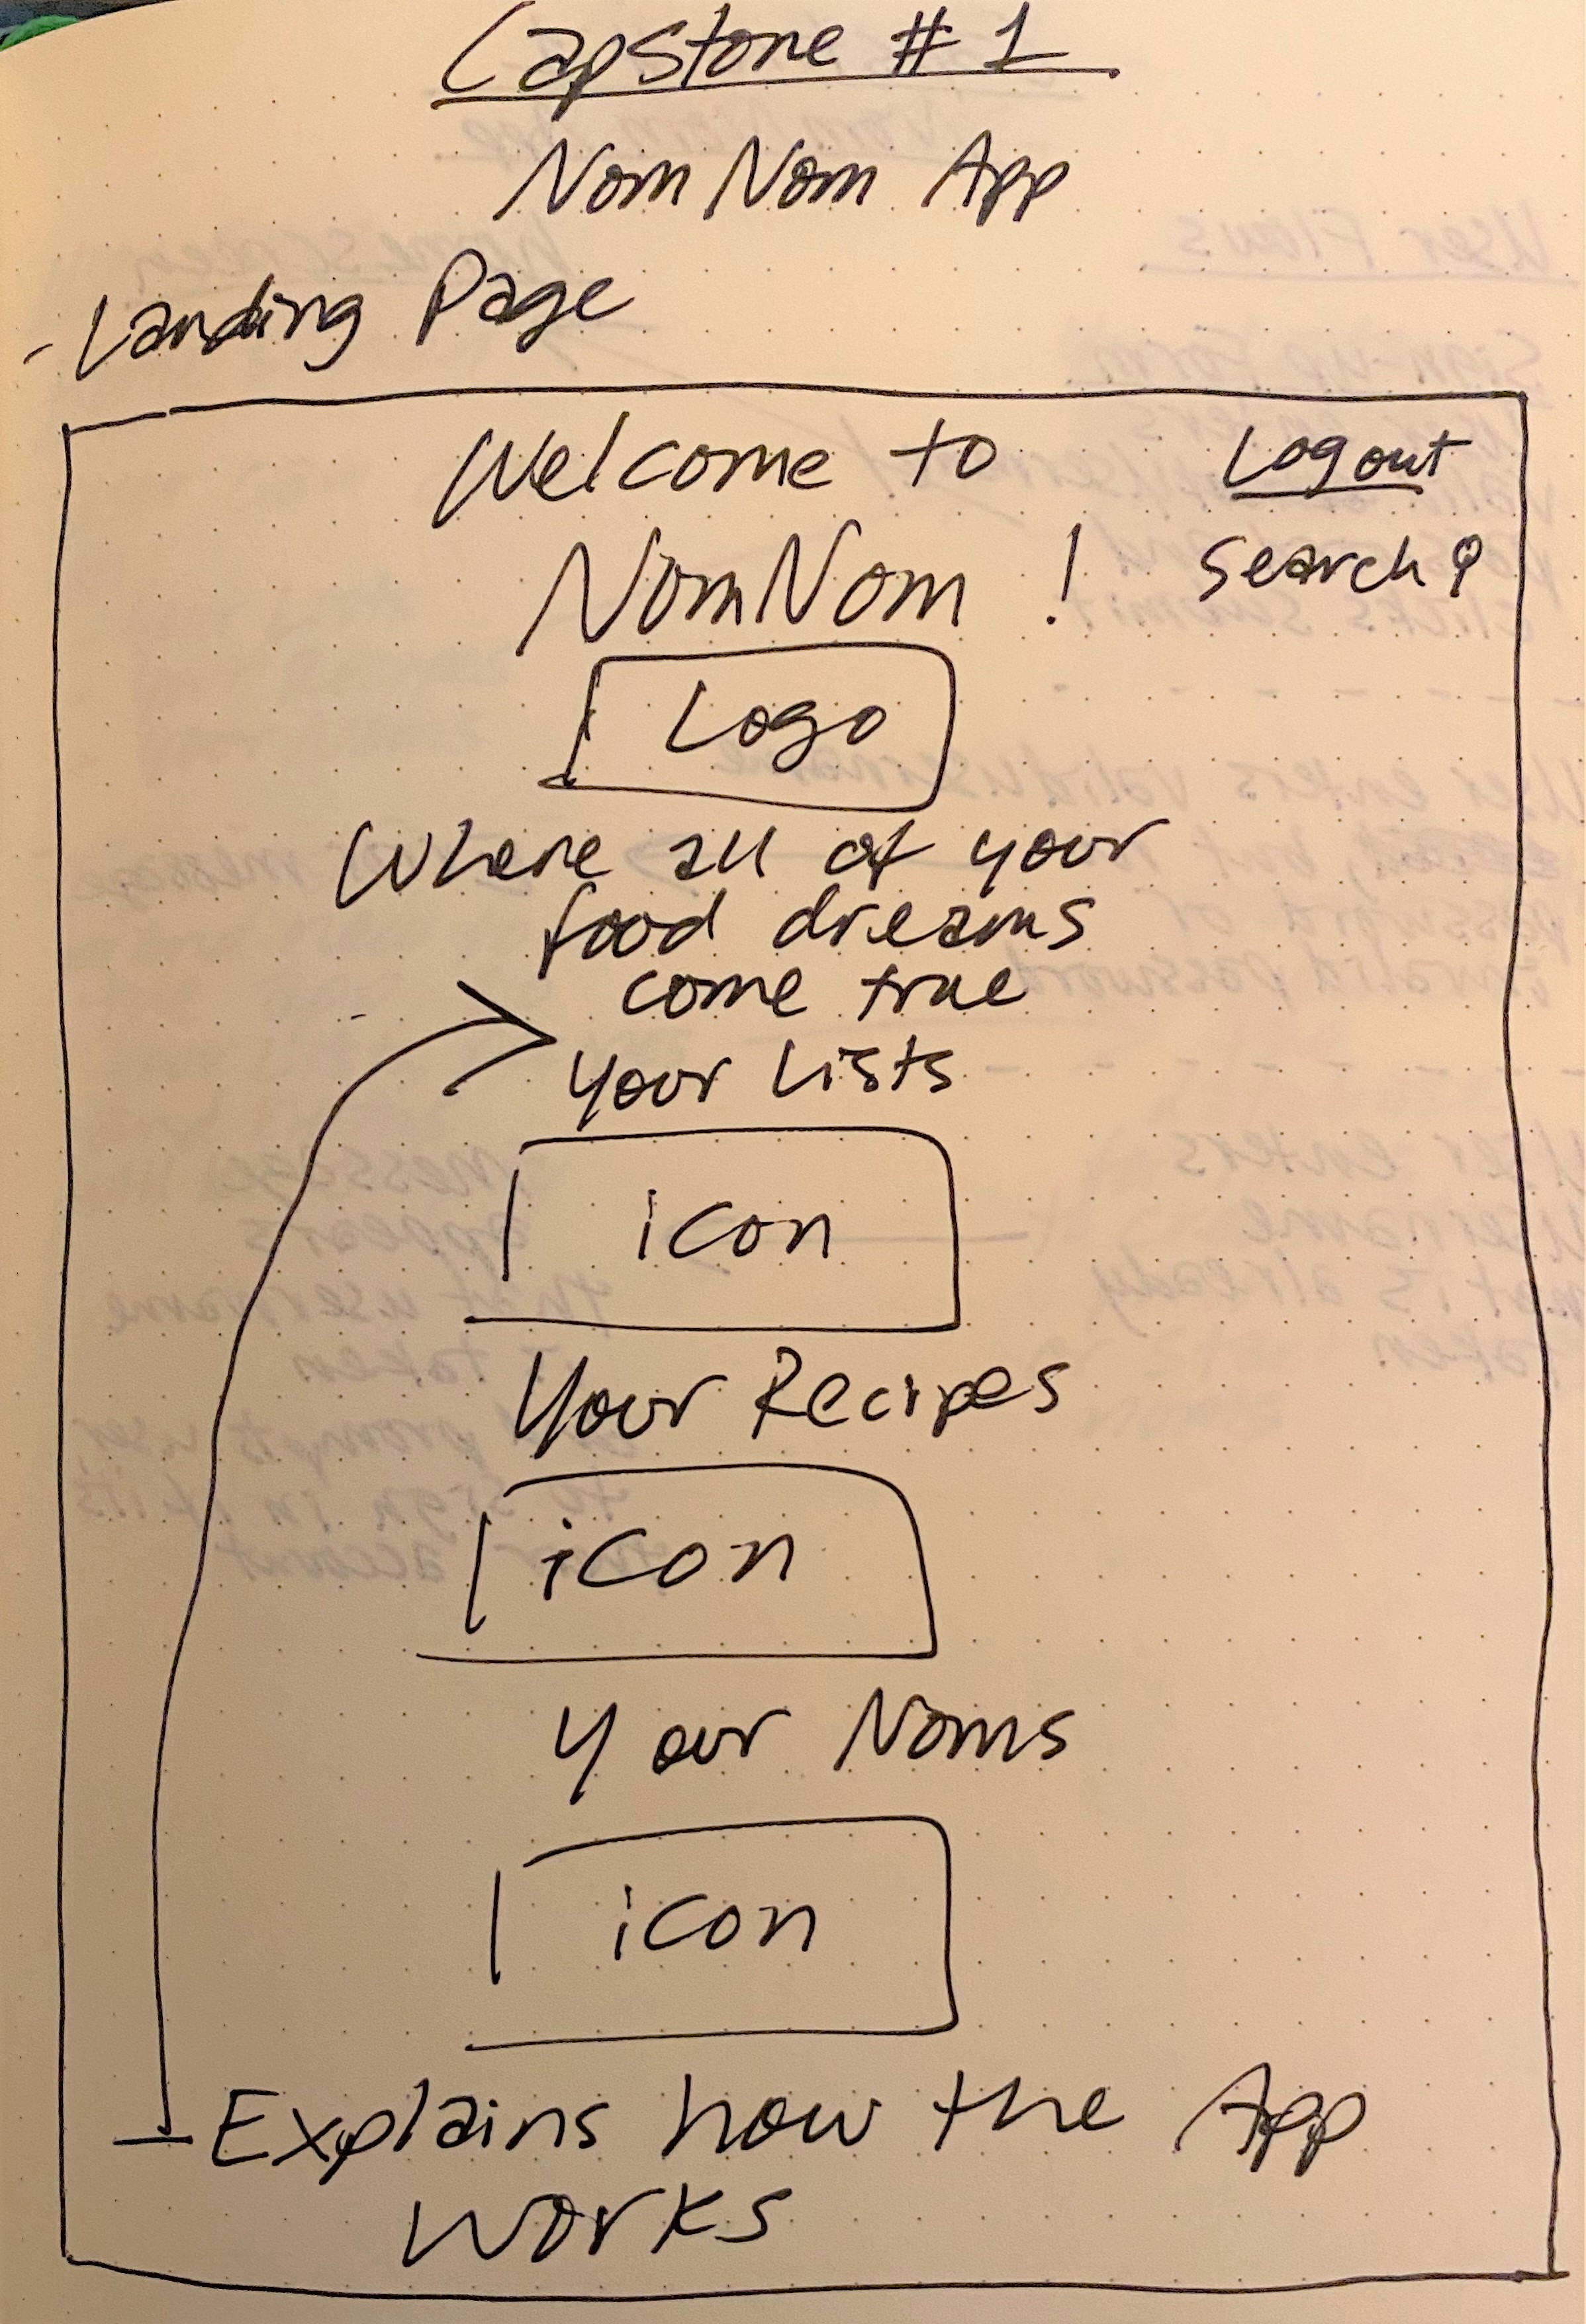 Capstone #1
NomNom App
- Landing Page
Welcome to
Logout
NomNom!
Search
Logo
Where all of your
food dreams
come true
Your Lists
icon
Your Recipes
icon
Your Noms
icon
Explains how the App
works